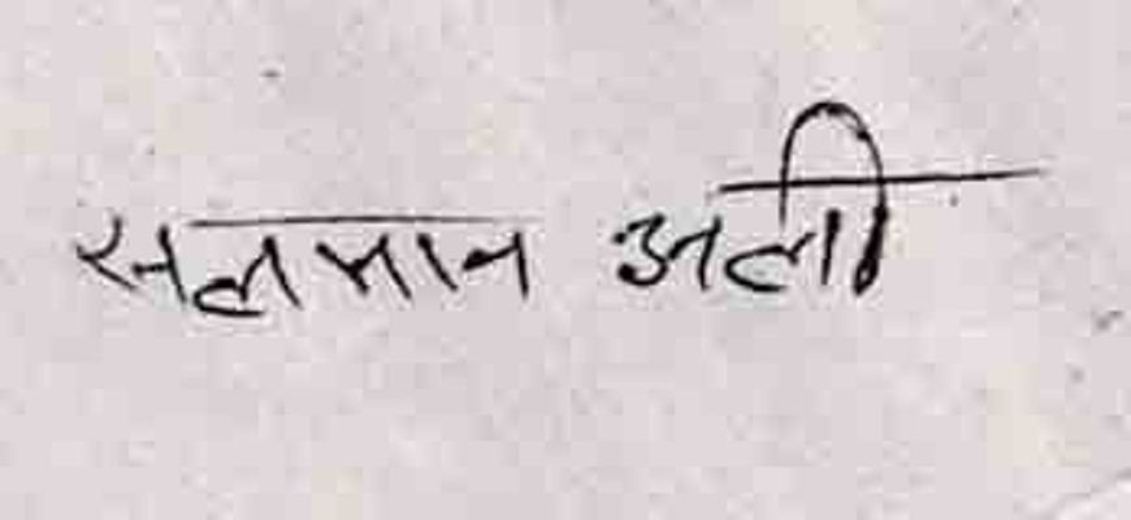 सलमान अली